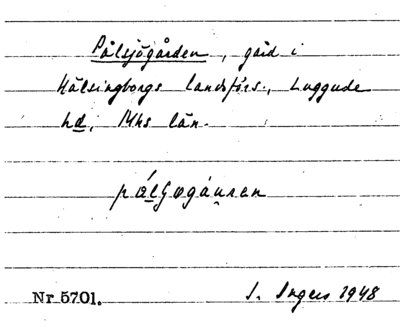 Pålsjögården, gård i
Hälsingborgs landsförs., Luggude
hd, Mhs län.
pålGøgáuren
Nr 5701. I. Ingers 1948